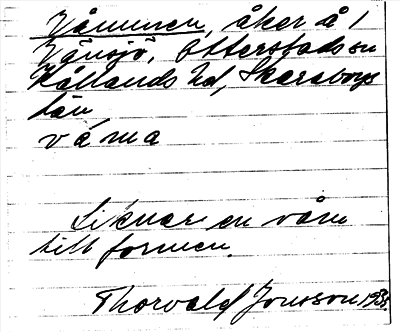 Våmmen, åker å 1
Vänsjö, Otterstads sn
Kållands hd, Skaraborgs
län
våma
Liknar en våm
till formen.
Thorvald Jonsson